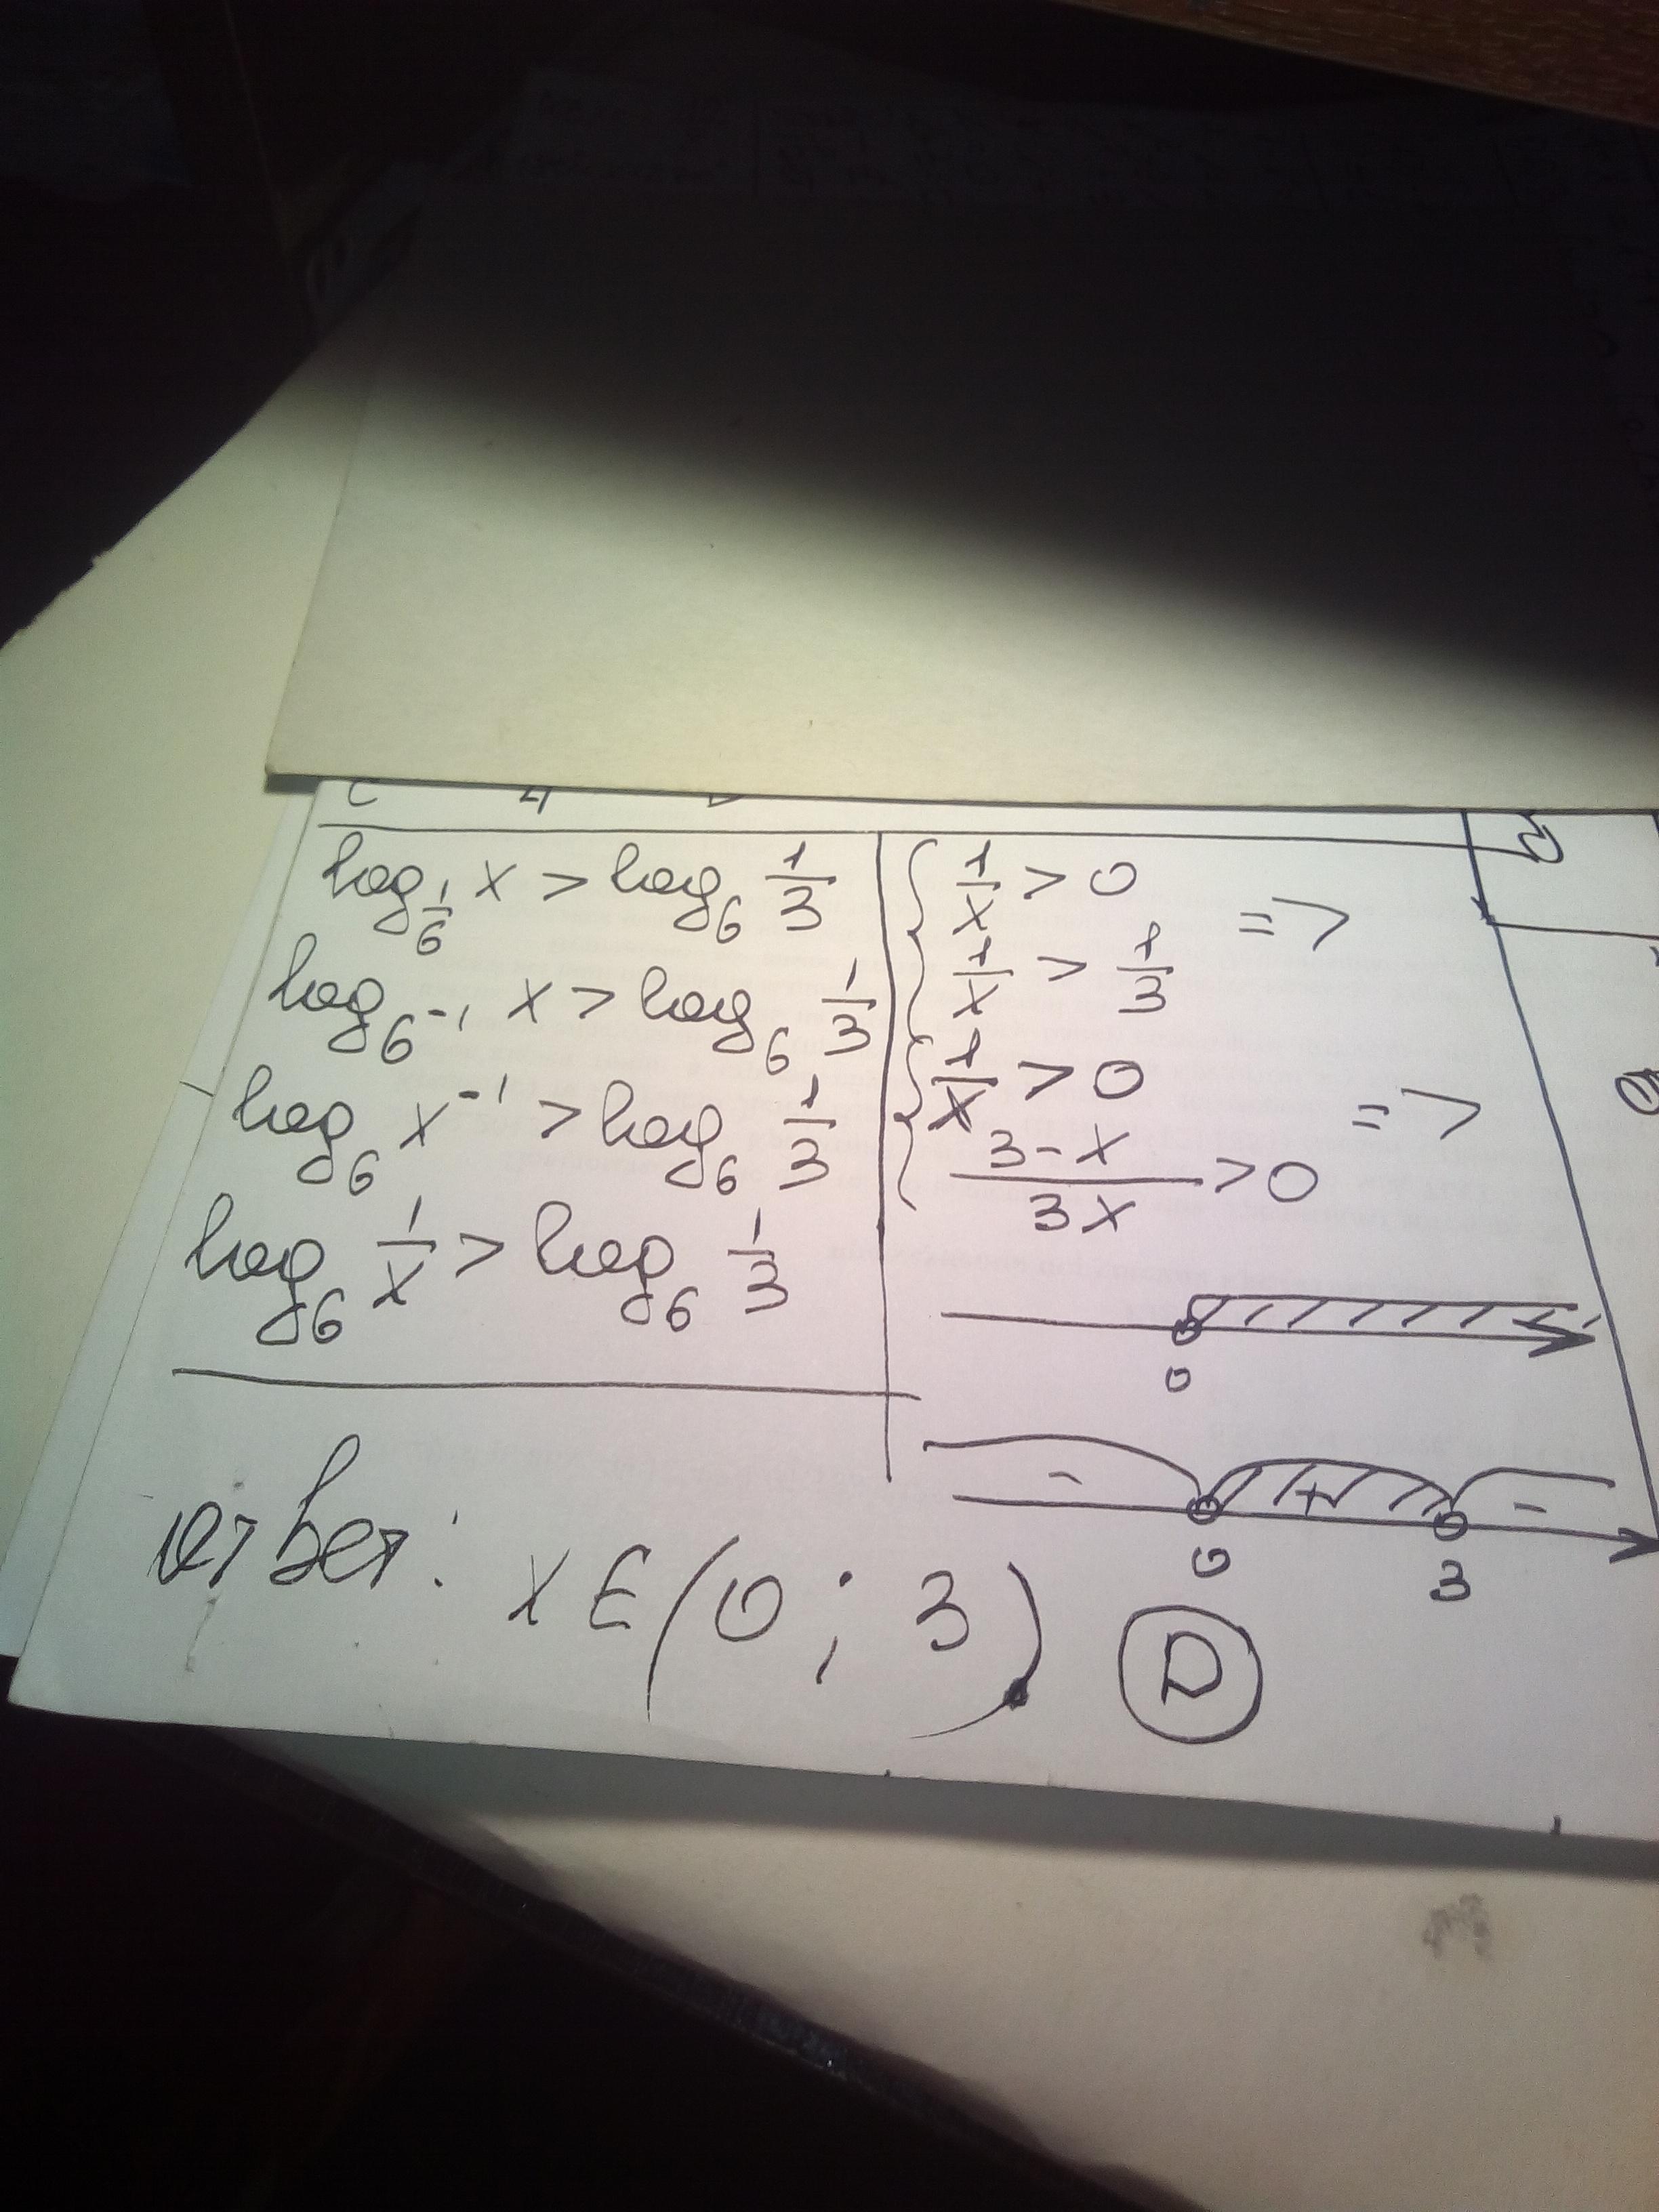 log_{1/6} x > log_6 1/3
log_{6^{-1}} x > log_6 1/3
log_6 x^{-1} > log_6 1/3
log_6 1/x > log_6 1/3
{ 1/x > 0
1/x > 1/3 =>
{ 1/x > 0
(3-x)/(3x) > 0 =>
0
- + -
0 3
ответ: x ∈ (0; 3). D